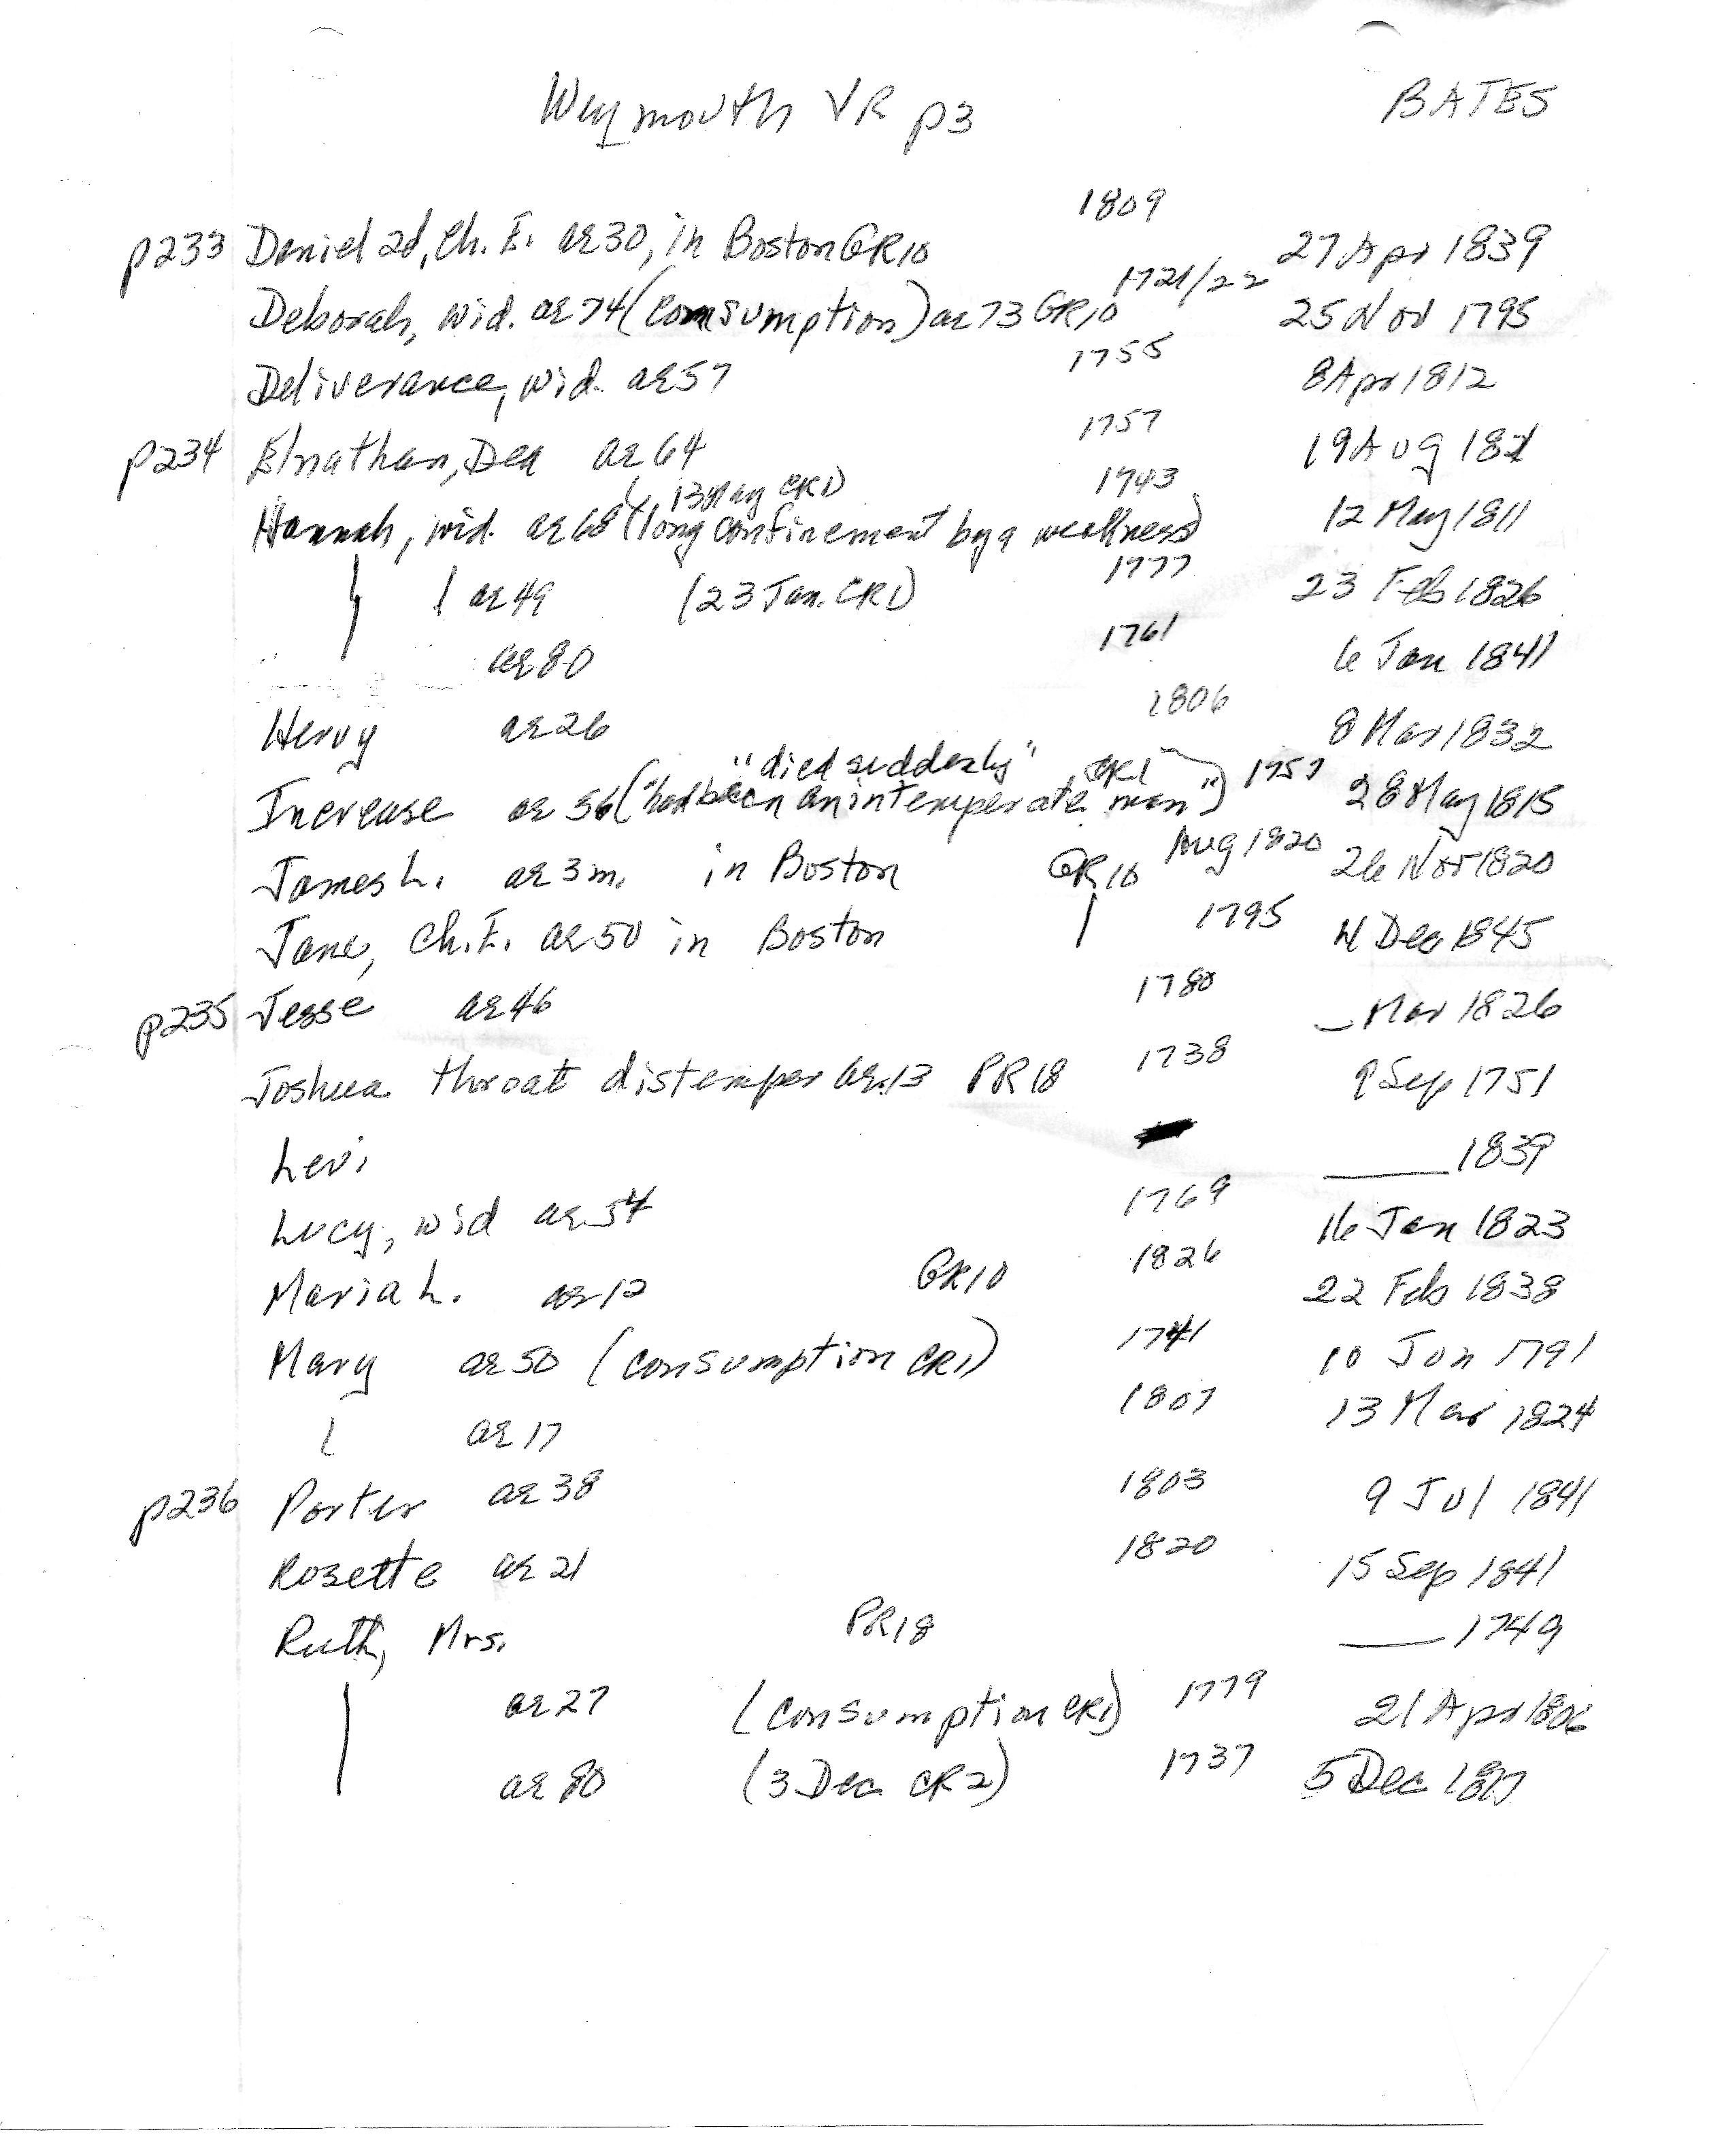 Weymouth VR p3 BATES
1809
p233 Daniel 2d, Ch. E. ae 30, in Boston GR10 27 Apr 1839
1721/22
Deborah, wid. ae 74 (Comsumption) ae 73 GR10 25 Nov 1795
1755
Deliverance, wid. ae 57 8 Apr 1812
1757
p234 Elnathan, Dea ae 64 19 Aug 1821
13 May CR1) 1743
Hannah, wid. ae 68 (long confinement by a weakness) 12 May 1811
ae 49 (23 Jan. CR1) 1777 23 Feb 1826
ae 80 1761 6 Jan 1841
Hervy ae 26 1806 8 Mar 1832
"died suddenly" CR1
Increase ae 56 ("had been an intemperate man") 1757 28 May 1815
James L. ae 3 m. in Boston GR10 Aug 1820 26 Nov 1820
Jane, Ch. E. ae 50 in Boston 1795 Dec 1845
p235 Jesse ae 46 1780 _ Mar 1826
Joshua throat distemper ae. 13 PR18 1738 9 Sep 1751
Levi ____ 1839
Lucy, wid ae 54 1769 16 Jan 1823
Maria L. ae 12 GR10 1826 22 Feb 1838
Mary ae 50 (consumption CR1) 1741 10 Jun 1791
ae 17 1807 13 Mar 1824
p236 Porter ae 38 1803 9 Jul 1841
Rosette ae 21 1820 15 Sep 1841
Ruth, Mrs. PR18 ____ 1749
ae 27 (consumption CR1) 1779 21 Apr 1806
ae 80 (3 Dec CR2) 1737 5 Dec 1817